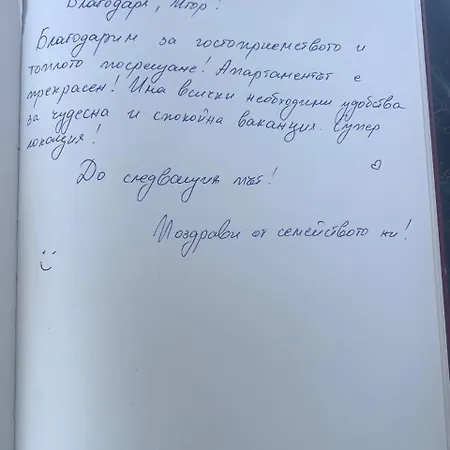 Благодаря, Игор!
Благодарим за гостоприемството и
топлото посрещане! Апартаментът е
прекрасен! Има всички необходими удобства
за чудесна и спокойна ваканция. Супер
локация!
До следващия път!
Поздрави от семейството ни!